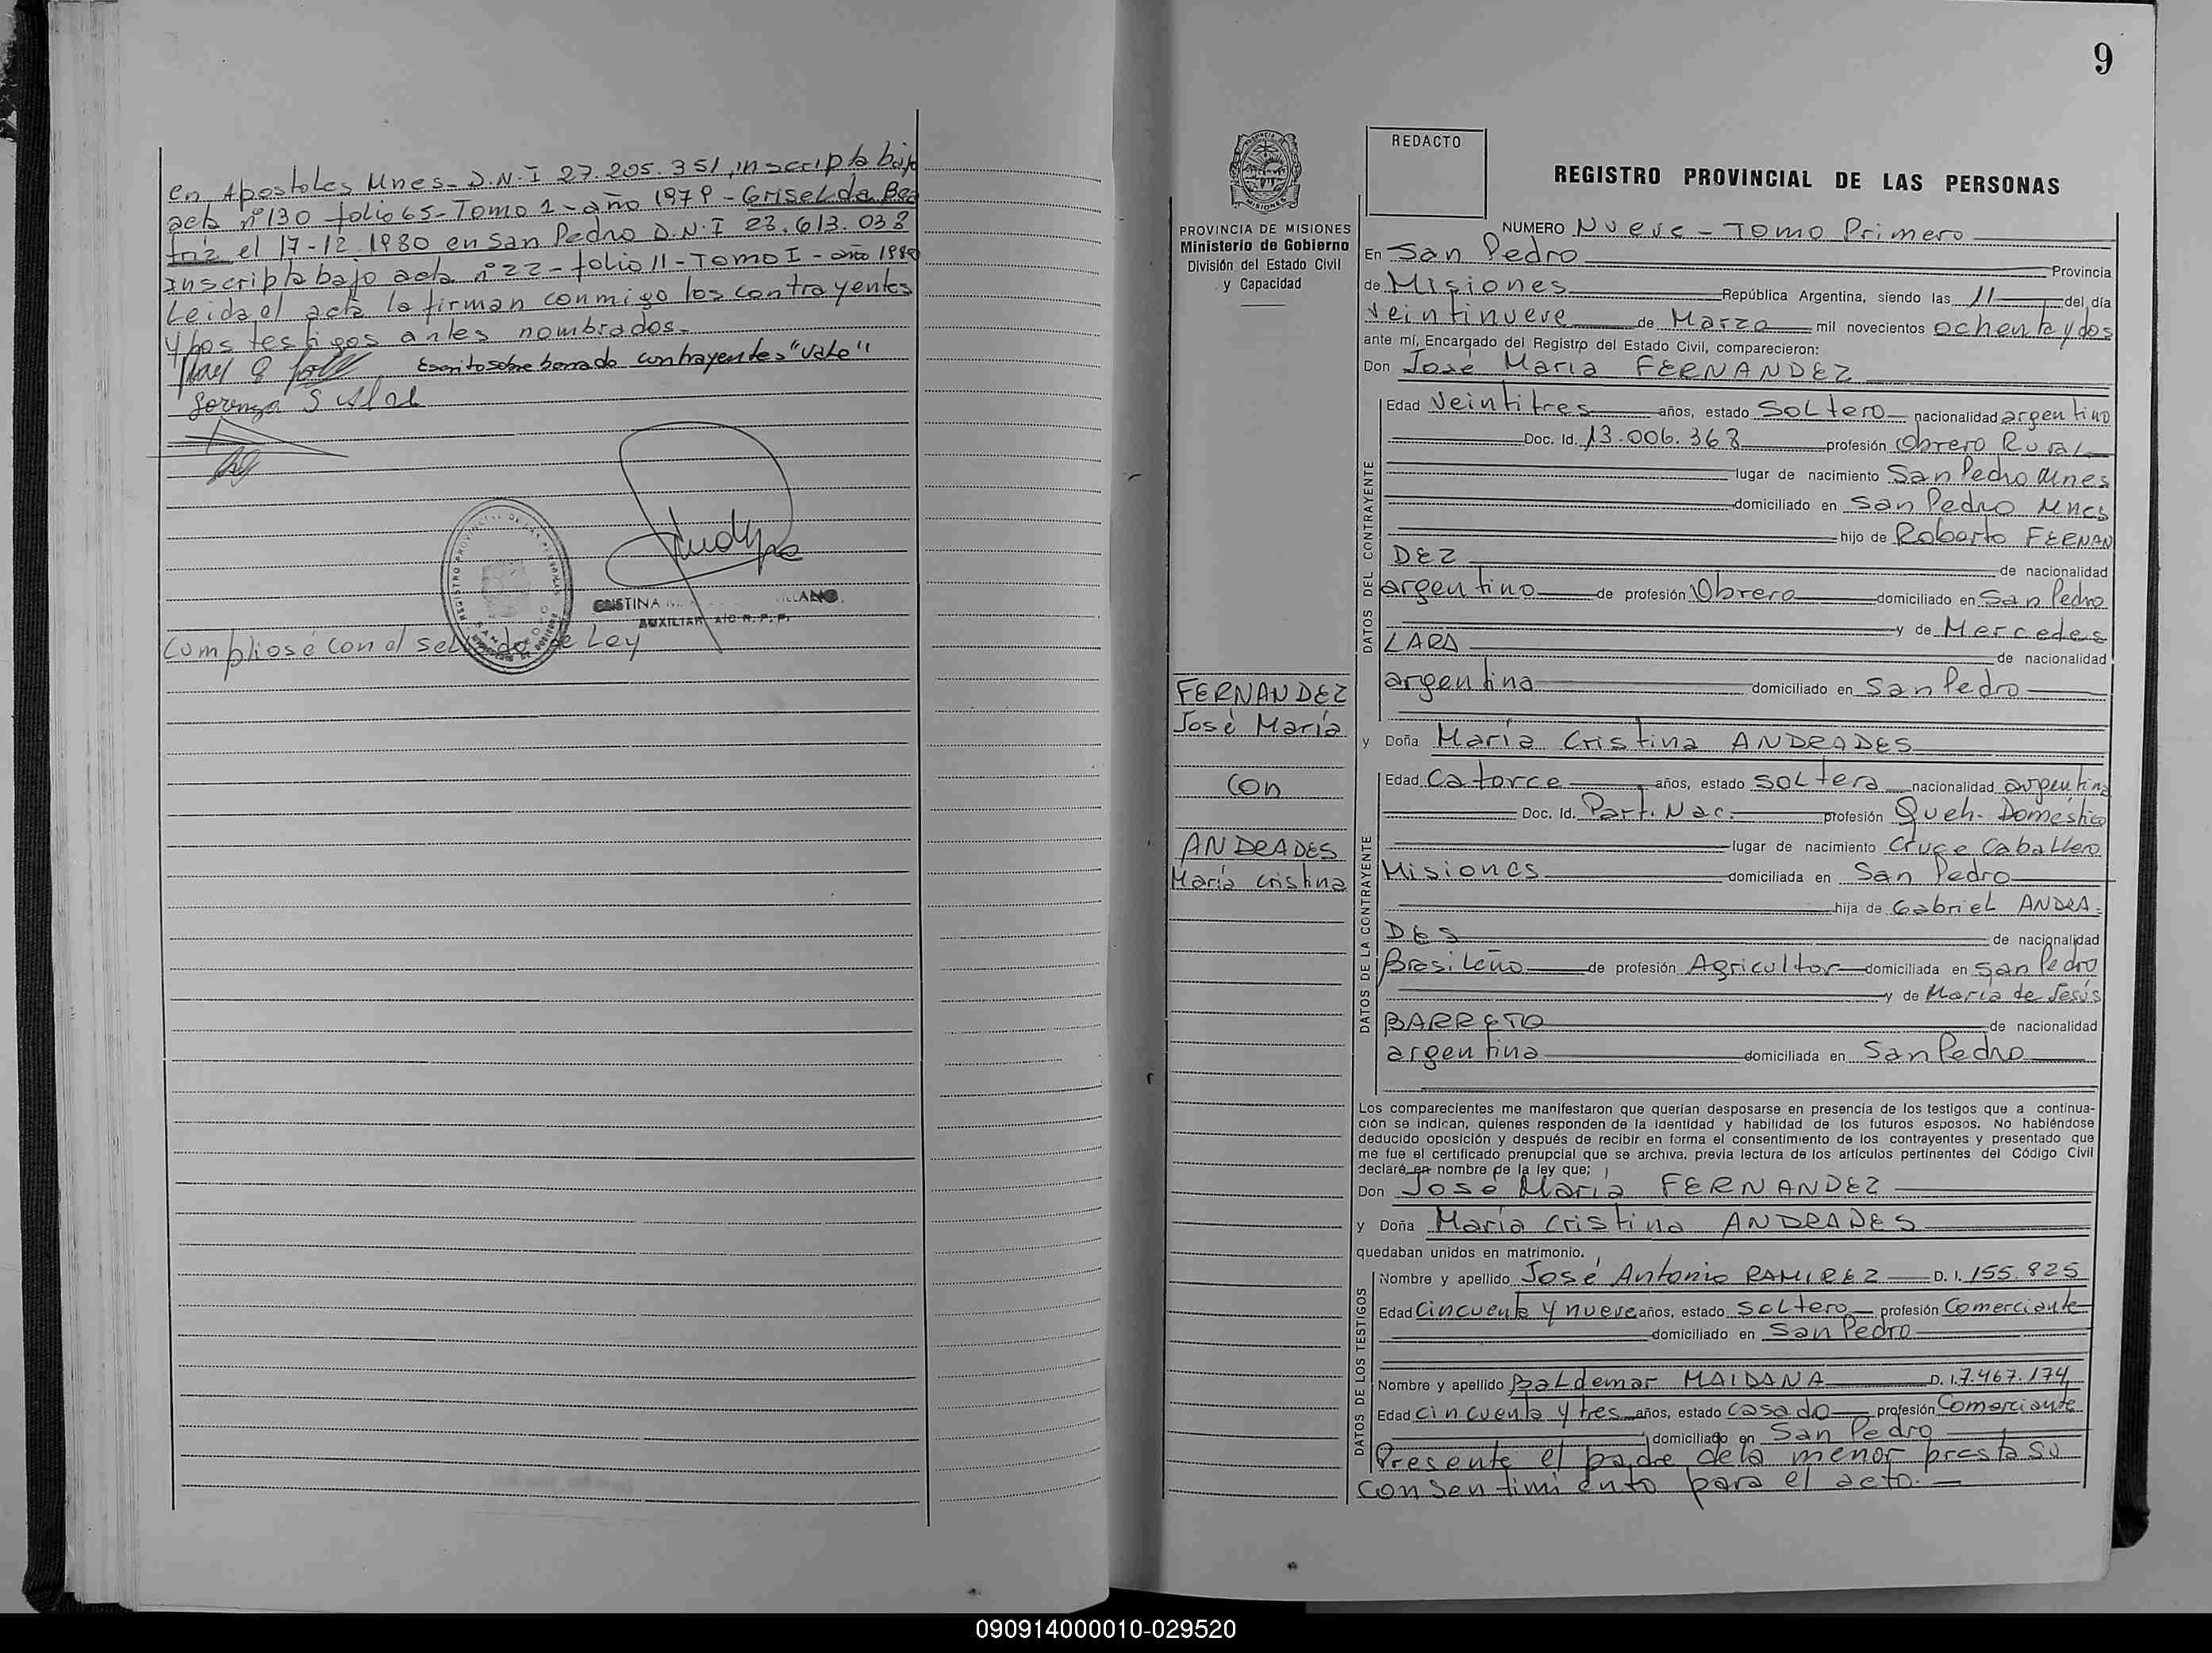 en Apostoles Mnes. D.N.I 27.205.351, inscripta bajo
acta nº 130 folio 65 - Tomo 1 - año 1979 - Griselda Bea
triz el 17-12-1980 en San Pedro D.N.I 28.613.038
inscripta bajo acta nº 22 - folio 11 - Tomo I - año 1980
Leida el acta la firman conmigo los contrayentes
y los testigos antes nombrados.-
Escrito sobre borrado contrayentes "Vale"
CRISTINA
AUXILIAR A/C R. P. P.
Cumpliose con el sellado de Ley
9
REDACTO
REGISTRO PROVINCIAL DE LAS PERSONAS
PROVINCIA DE MISIONES
Ministerio de Gobierno
División del Estado Civil
y Capacidad
FERNANDEZ
José María
con
ANDRADES
María Cristina
NUMERO Nueve - Tomo Primero
En San Pedro Provincia
de Misiones República Argentina, siendo las 11 del día
veintinueve de Marzo mil novecientos ochenta y dos
ante mí, Encargado del Registro del Estado Civil, comparecieron:
Don José María FERNANDEZ
DATOS DEL CONTRAYENTE
Edad Veintitres años, estado Soltero nacionalidad argentino
Doc. Id. 13.006.368 profesión Obrero Rural
lugar de nacimiento San Pedro Mnes
domiciliado en San Pedro Mnes
hijo de Roberto FERNAN
DEZ de nacionalidad
argentino de profesión Obrero domiciliado en San Pedro
y de Mercedes
LARA de nacionalidad
argentina domiciliado en San Pedro
y Doña María Cristina ANDRADES
DATOS DE LA CONTRAYENTE
Edad Catorce años, estado Soltera nacionalidad argentina
Doc. Id. Part. Nac. profesión Queh. Domestico
lugar de nacimiento Cruce Caballero
Misiones domiciliada en San Pedro
hija de Gabriel ANDRA-
DES de nacionalidad
Brasileño de profesión Agricultor domiciliada en San Pedro
y de María de Jesús
BARRETO de nacionalidad
argentina domiciliada en San Pedro
Los comparecientes me manifestaron que querían desposarse en presencia de los testigos que a continua-
ción se indican, quienes responden de la identidad y habilidad de los futuros esposos. No habiéndose
deducido oposición y después de recibir en forma el consentimiento de los contrayentes y presentado que
me fue el certificado prenupcial que se archiva, previa lectura de los artículos pertinentes del Código Civil
declaré en nombre de la ley que:
Don José María FERNANDEZ
y Doña María Cristina ANDRADES
quedaban unidos en matrimonio.
DATOS DE LOS TESTIGOS
Nombre y apellido José Antonio RAMIREZ D. I. 155.825
Edad Cincuenta y nueve años, estado Soltero profesión Comerciante
domiciliado en San Pedro
Nombre y apellido Baldemar MAIDANA D. I. 7.467.174
Edad Cincuenta y tres años, estado casado profesión Comerciante
domiciliado en San Pedro
Presente el padre de la menor presta su
consentimiento para el acto.-
090914000010-029520